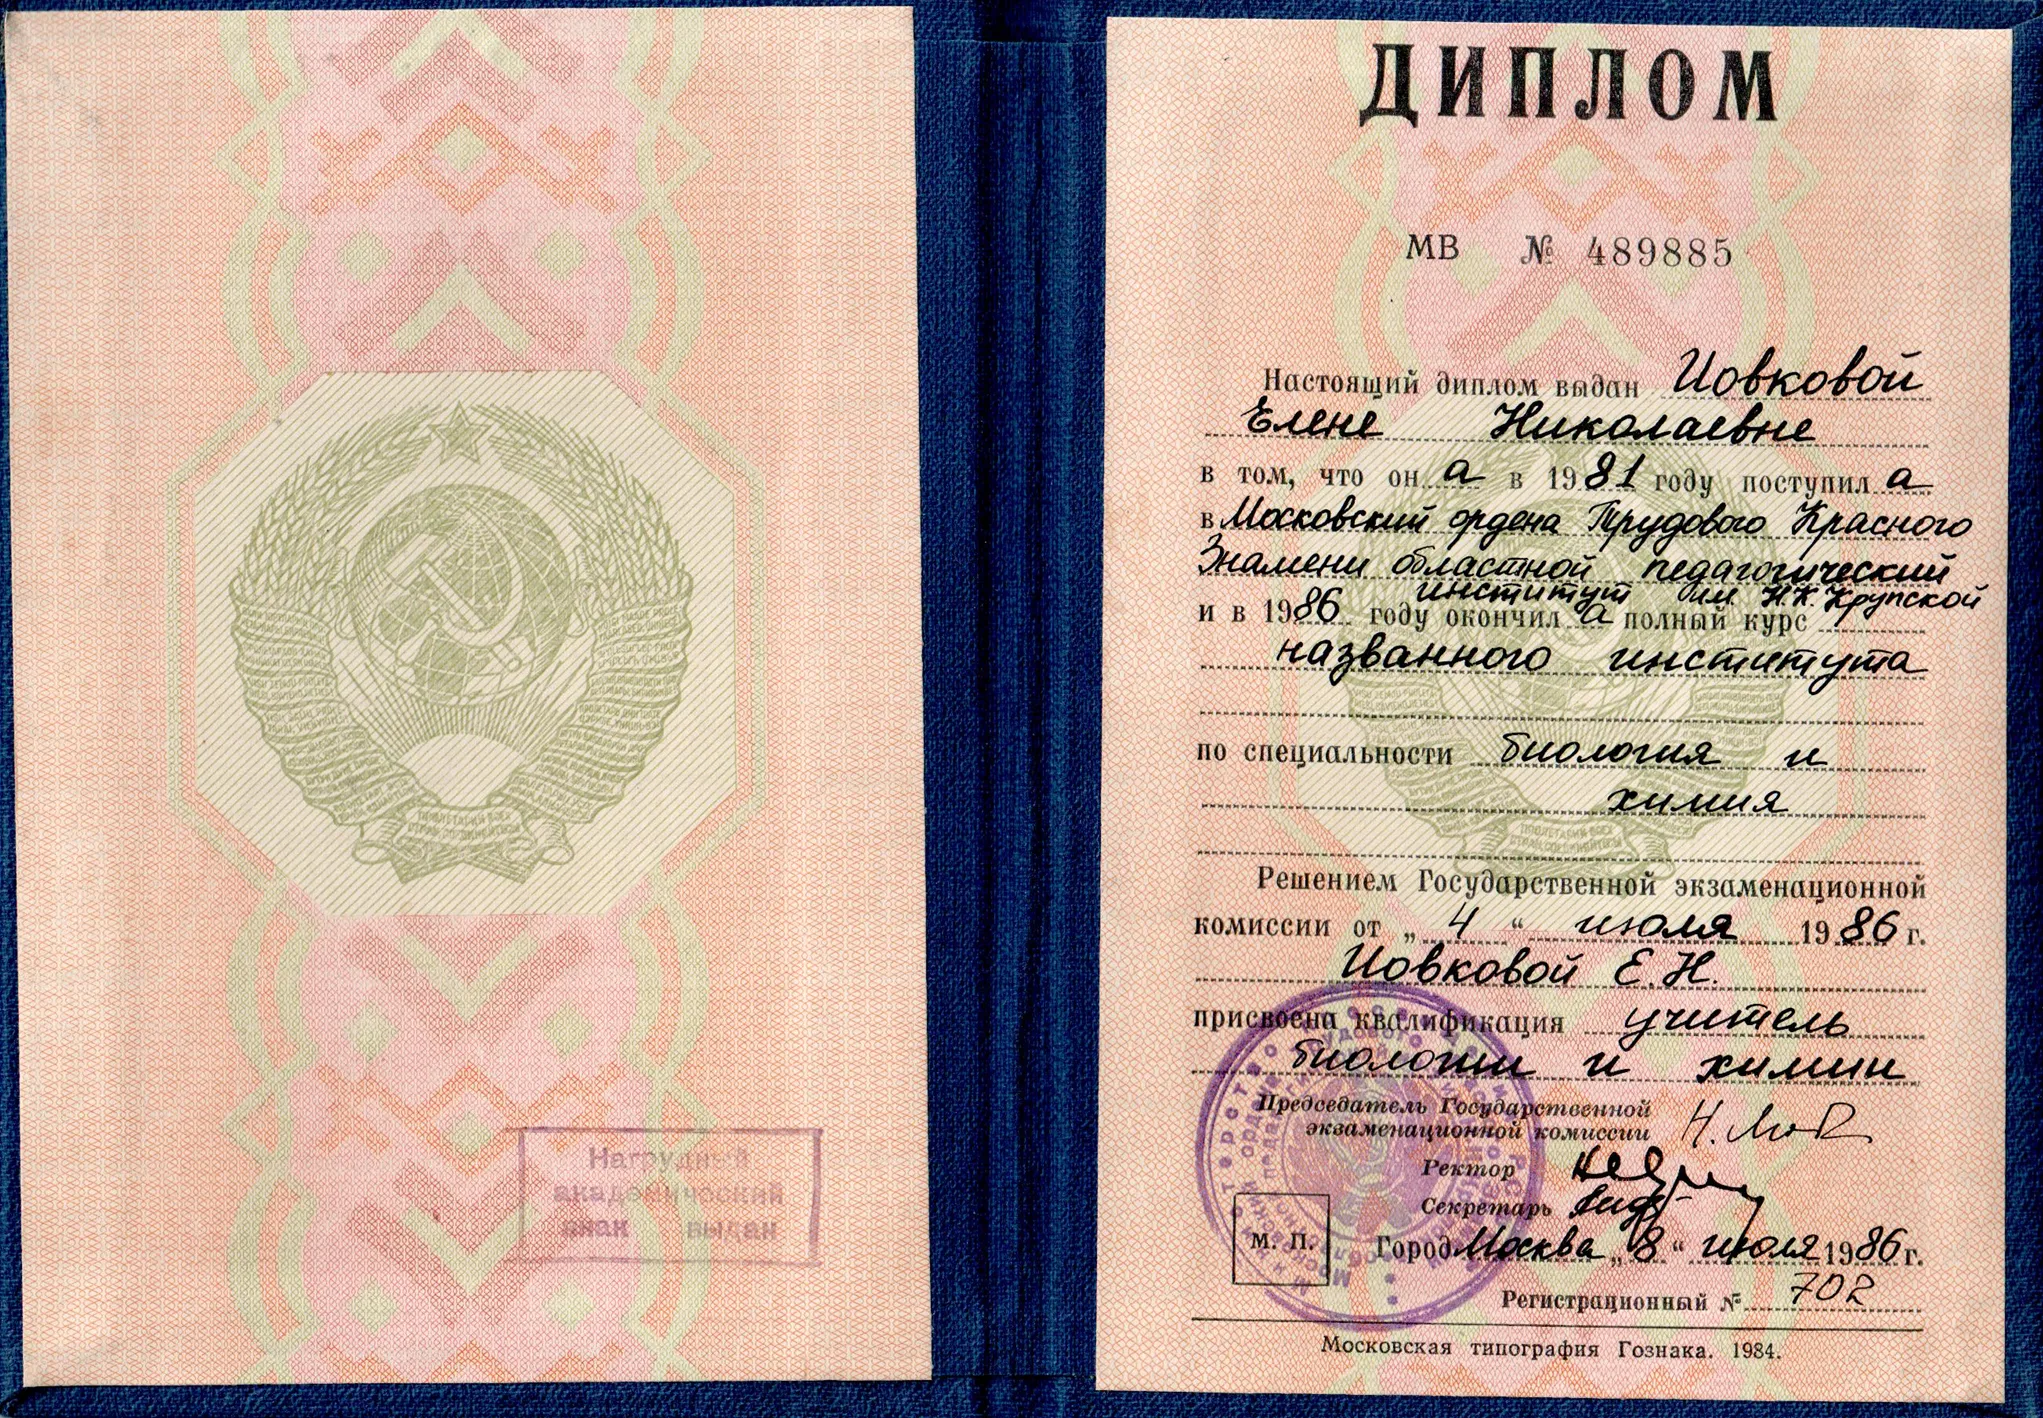 Нагрудный
академический
знак выдан
ДИПЛОМ
МВ № 489885
Настоящий диплом выдан Иовковой
Елене Николаевне
в том, что он а в 1981 году поступил а
в Московский ордена Трудового Красного
Знамени областной педагогический
институт им. Н.К. Крупской
и в 1986 году окончил а полный курс
названного института
по специальности биология и
химия
Решением Государственной экзаменационной
комиссии от „ 4 “ июля 1986 г.
Иовковой Е.Н.
присвоена квалификация учитель
биологии и химии
Председатель Государственной
экзаменационной комиссии
Ректор
Секретарь
М. П.
Город Москва „ 8 “ июля 1986 г.
Регистрационный № 702
Московская типография Гознака. 1984.